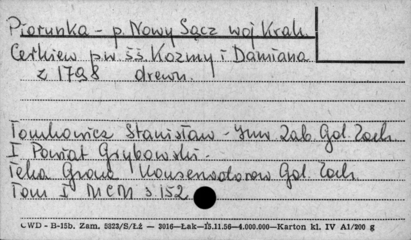 Piorunka - p. Nowy Sącz woj Krak.
Cerkiew p.w. ś.ś. Kozmy i Damiana
z 1798 drewn.
Tomkowicz Stanisław - Inw. Zab. Gal. Zach
I Powiat Grybowski.
Teka Grona Konserwatorów Gal. Zach
Tom I MCM s 152
CWD - B-15b. Zam. 5323/S/Łż — 3016—Łak—15.11.56—4.000.000—Karton kl. IV A1/200 g